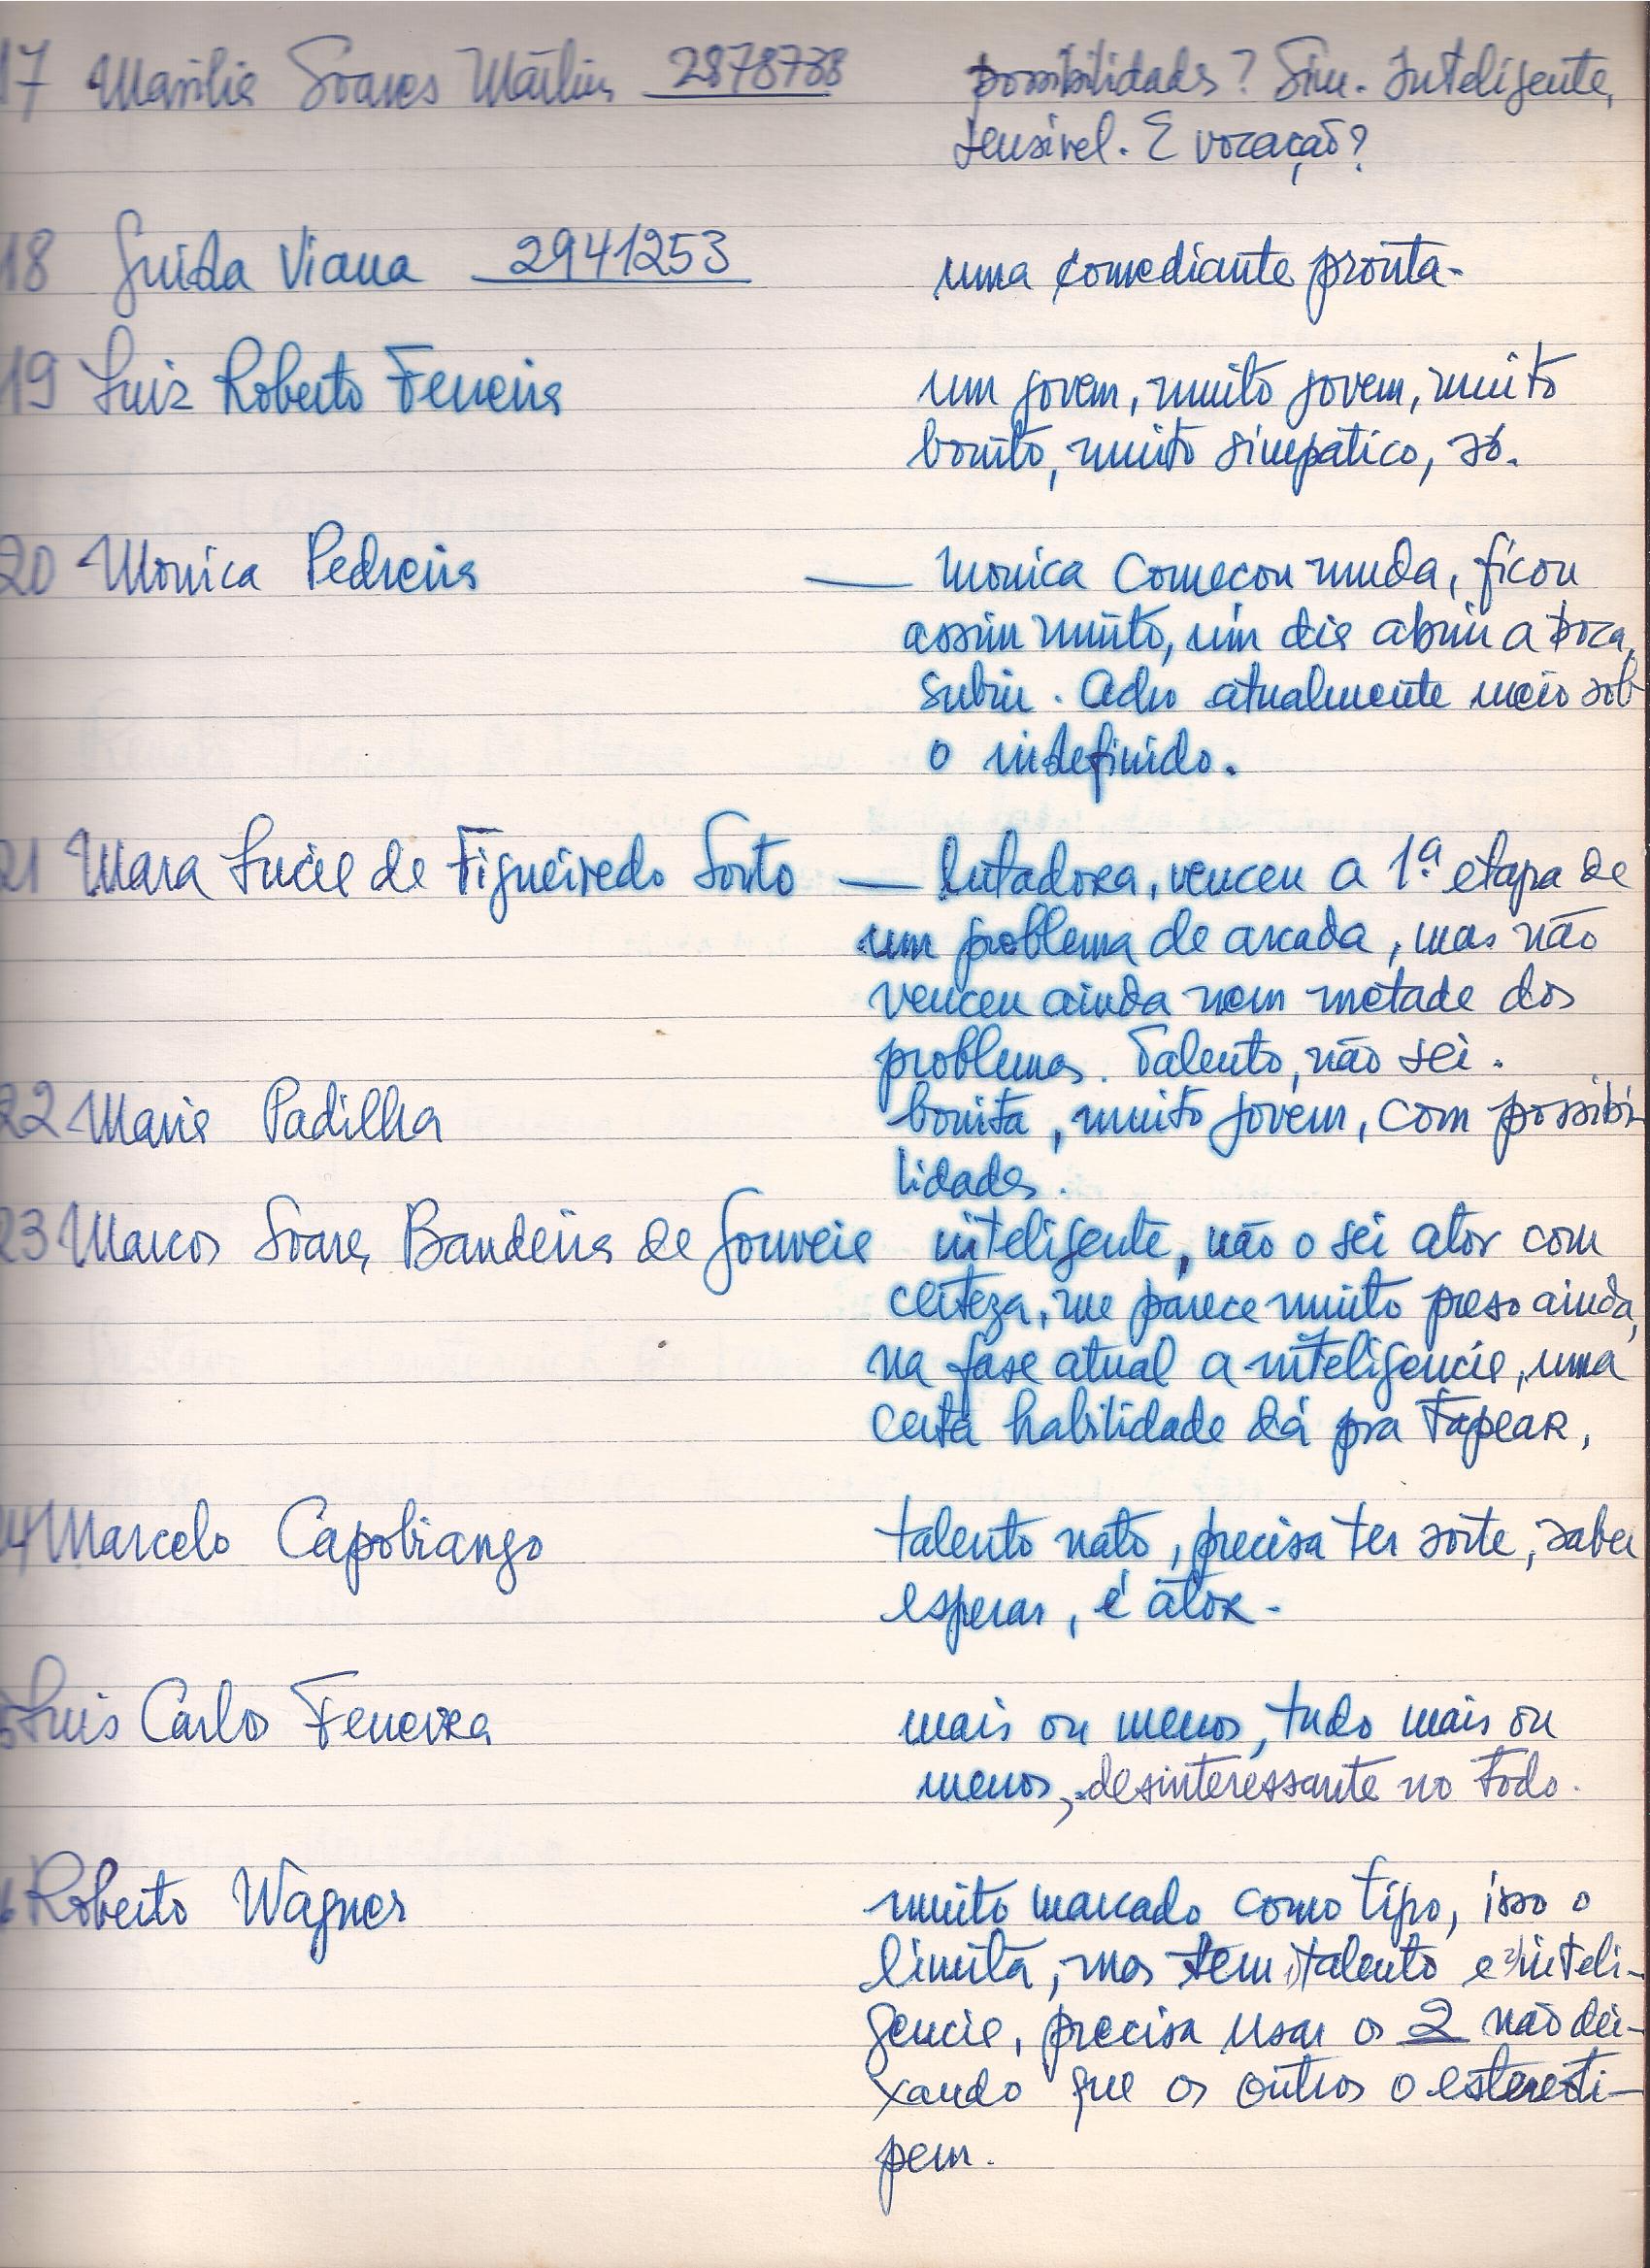 17 Marilia Soares Martins 2878788 possibilidades? Sim. Inteligente,
sensível. E vocação?
18 Guida Viana 2941253 uma comediante pronta-
19 Luiz Roberto Ferreira um jovem, muito jovem, muito
bonito, muito simpático, só.
20 Monica Pedreira — Monica começou muda, ficou
assim muito, um dia abriu a boca,
subiu. Acho atualmente meio sob
o indefinido.
21 Mara Lucia de Figueiredo Souto — lutadora, venceu a 1ª etapa de
um problema de arcada, mas não
venceu ainda nem metade dos
problemas. Talento, não sei.
22 Maria Padilha bonita, muito jovem, com possibi-
lidades.
23 Marcos Soares Bandeira de Gouveia inteligente, não o sei ator com
certeza, me parece muito preso ainda,
na fase atual a inteligencia, uma
certa habilidade dá pra tapear,
4 Marcelo Capobiango talento nato, precisa ter sorte, saber
esperar, é ator-
5 Luis Carlos Ferreira mais ou menos, tudo mais ou
menos, desinteressante no todo.
6 Roberto Wagner muito marcado como tipo, isso o
limita, mas tem 1) talento e 2) inteli-
gencia, precisa usar os 2 não dei-
xando que os outros o estereoti-
pem.